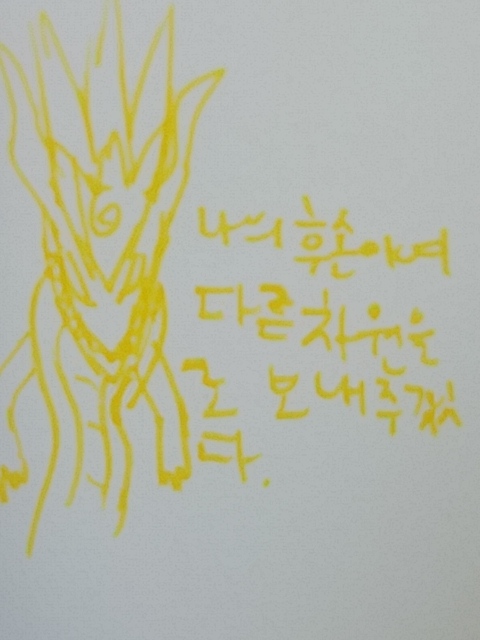 나의 후손이여
다른 차원으
로 보내주겠
다.